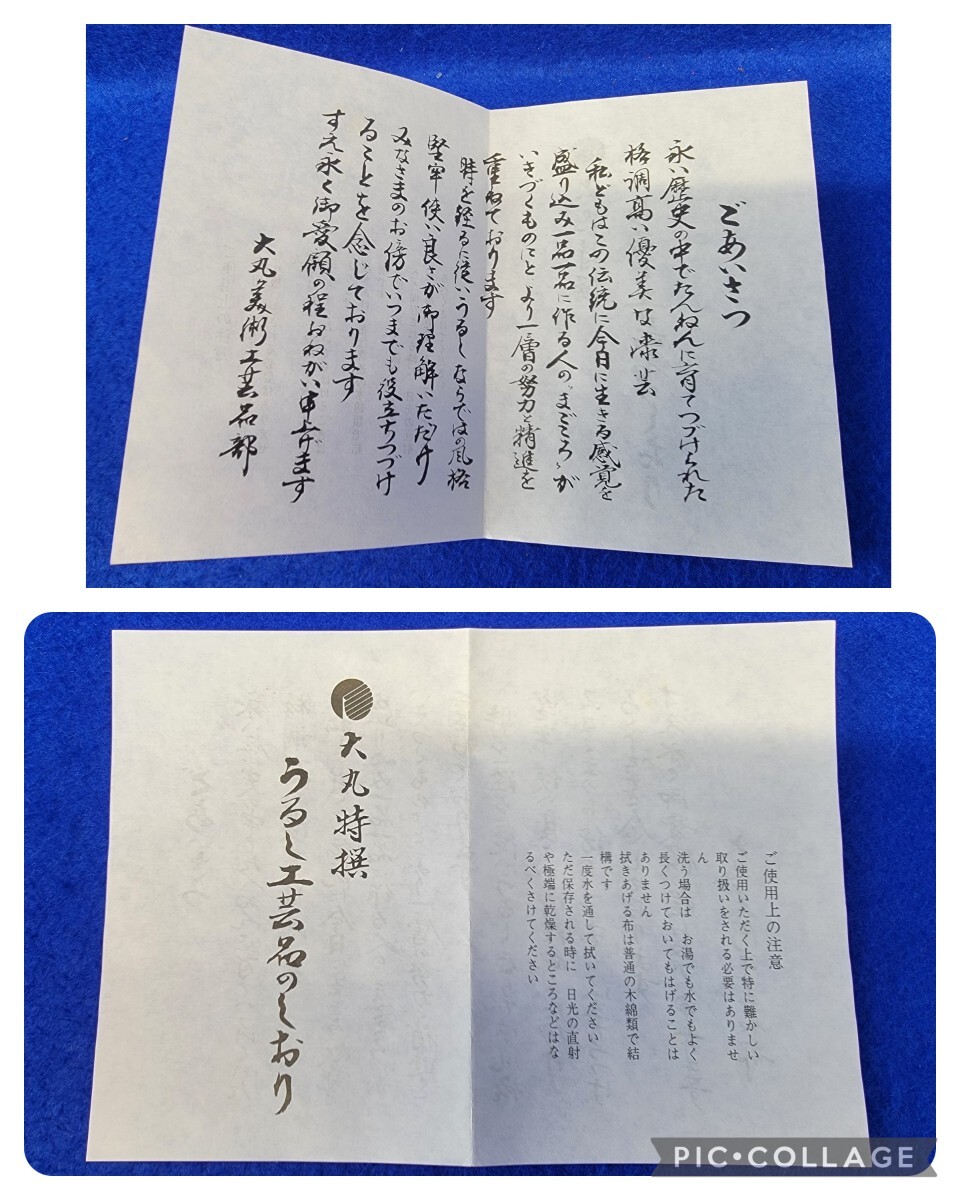 ごあいさつ
永い歴史の中でたんねんに育てつづけられた
格調高い優美な漆芸
私どもはこの伝統に今日に生きる感覚を
盛り込み一品一品に作る人の〝まごころ〟が
いきづくものにと より一層の努力と精進を
重ねております
時を経るに従いうるしならではの風格
堅牢 使い良さが御理解いただけ
みなさまのお傍でいつまでも役立ちつづけ
ることを念じております
すえ永く御愛顧の程おねがい申上げます
大丸美術工芸品部
大丸特撰
うるし工芸品のしおり
ご使用上の注意
ご使用いただく上で特に難かしい
取り扱いをされる必要はありませ
ん
洗う場合は お湯でも水でもよく
長くつけておいてもはげることは
ありません
拭きあげる布は普通の木綿類で結
構です
一度水を通して拭いてください
ただ保存される時に 日光の直射
や極端に乾燥するところなどはな
るべくさけてください
PIC•COLLAGE